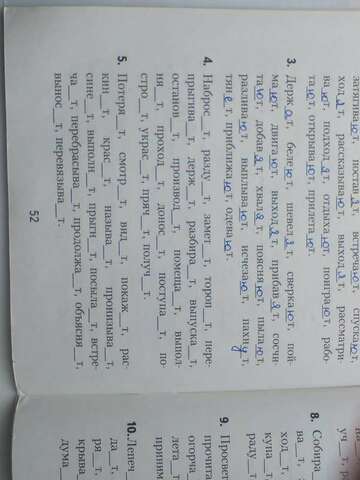 затягива ют, постро ят, встреча ют, спуска ют,
ход ят, рассказыва ют, выход ят, рассматри-
ва ют, подход ят, отдыха ют, поигра ют, рабо-
та ют, открыва ют, прилета ют.
3. Держ ат, беле ют, шевел ят, сверка ют, пой-
ма ют, двига ют, выход ят, прибав ят, сосчи-
та ют, добав ят, хвал ят, поясня ют, пыла ют,
разлива ют, выплыва ют, исчеза ют, пахн ут,
тян ет, приближа ют, одева ют.
4. Наброс__т, разду__т, замет__т, тороп__т, пере-
прыгива__т, держ__т, разбира__т, выпуска__т,
останов__т, производ__т, помеща__т, выпол-
ня__т, проход__т, донос__т, поступа__т, по-
стро__т, украс__т, пряч__т, получ__т.
5. Потеря__т, смотр__т, вид__т, покаж__т, рас-
кин__т, крас__т, называ__т, пронизыва__т,
сине__т, выполн__т, прыгн__т, посыла__т, встре-
ча__т, перебрасыва__т, продолжа__т, объясня__т,
вынос__т, перевязыва__т.
52
уч__т,
8. Собира
ва__т,
ход__т
купа__т
раду__т
9. Просвет
пропита
огорча
лета__т
приним
10. Лепеч
да__т
ря__т,
крыва
дума__